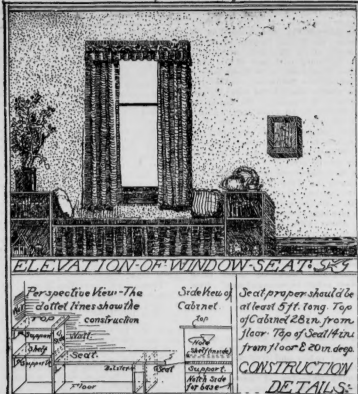 ELEVATION-OF-WINDOW-SEAT:
Perspective View-The
dotted lines show the
construction
Top
Wall
Support
Shelf
Support
Seat
Bolsters
Seat
Floor
Side View of
Cabinet
Top
Note
Shelf (inside)
Support
Notch Side
for base
Seat proper should be
at least 5 ft. long. Top
of Cabinet 28 in. from
floor Top of Seat 14 in.
from floor & 20 in deep.
CONSTRUCTION
DETAILS: